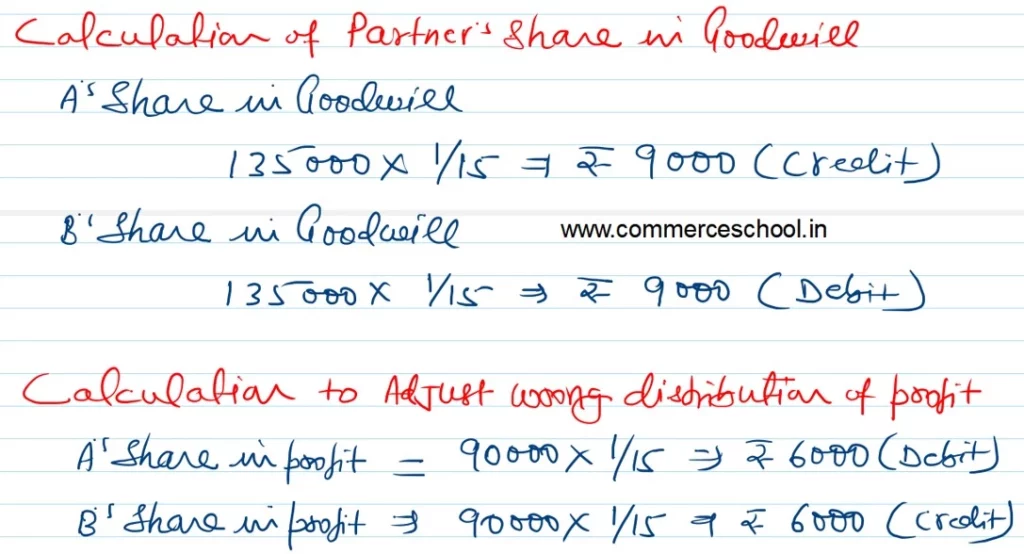 Calculation of Partner's Share in Goodwill
A's Share in Goodwill
135000 × 1/15 ⇒ ₹ 9000 (Credit)
B's Share in Goodwill www.commerceschool.in
135000 × 1/15 ⇒ ₹ 9000 (Debit)
Calculation to Adjust wrong distribution of profit
A's Share in profit = 90000 × 1/15 ⇒ ₹ 6000 (Debit)
B's Share in profit ⇒ 90000 × 1/15 ⇒ ₹ 6000 (Credit)